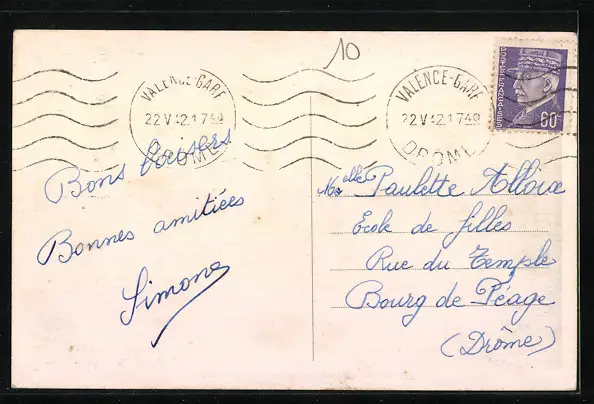 10
VALENCE-GARE
22 V 42.1740
DROME
VALENCE-GARE
22 V 42.1740
DROME
60
Bons baisers
Bonnes amitiées
Simone
Melle Paulette Alloix
École de filles
Rue du Temple
Bourg de Péage
(Drôme)